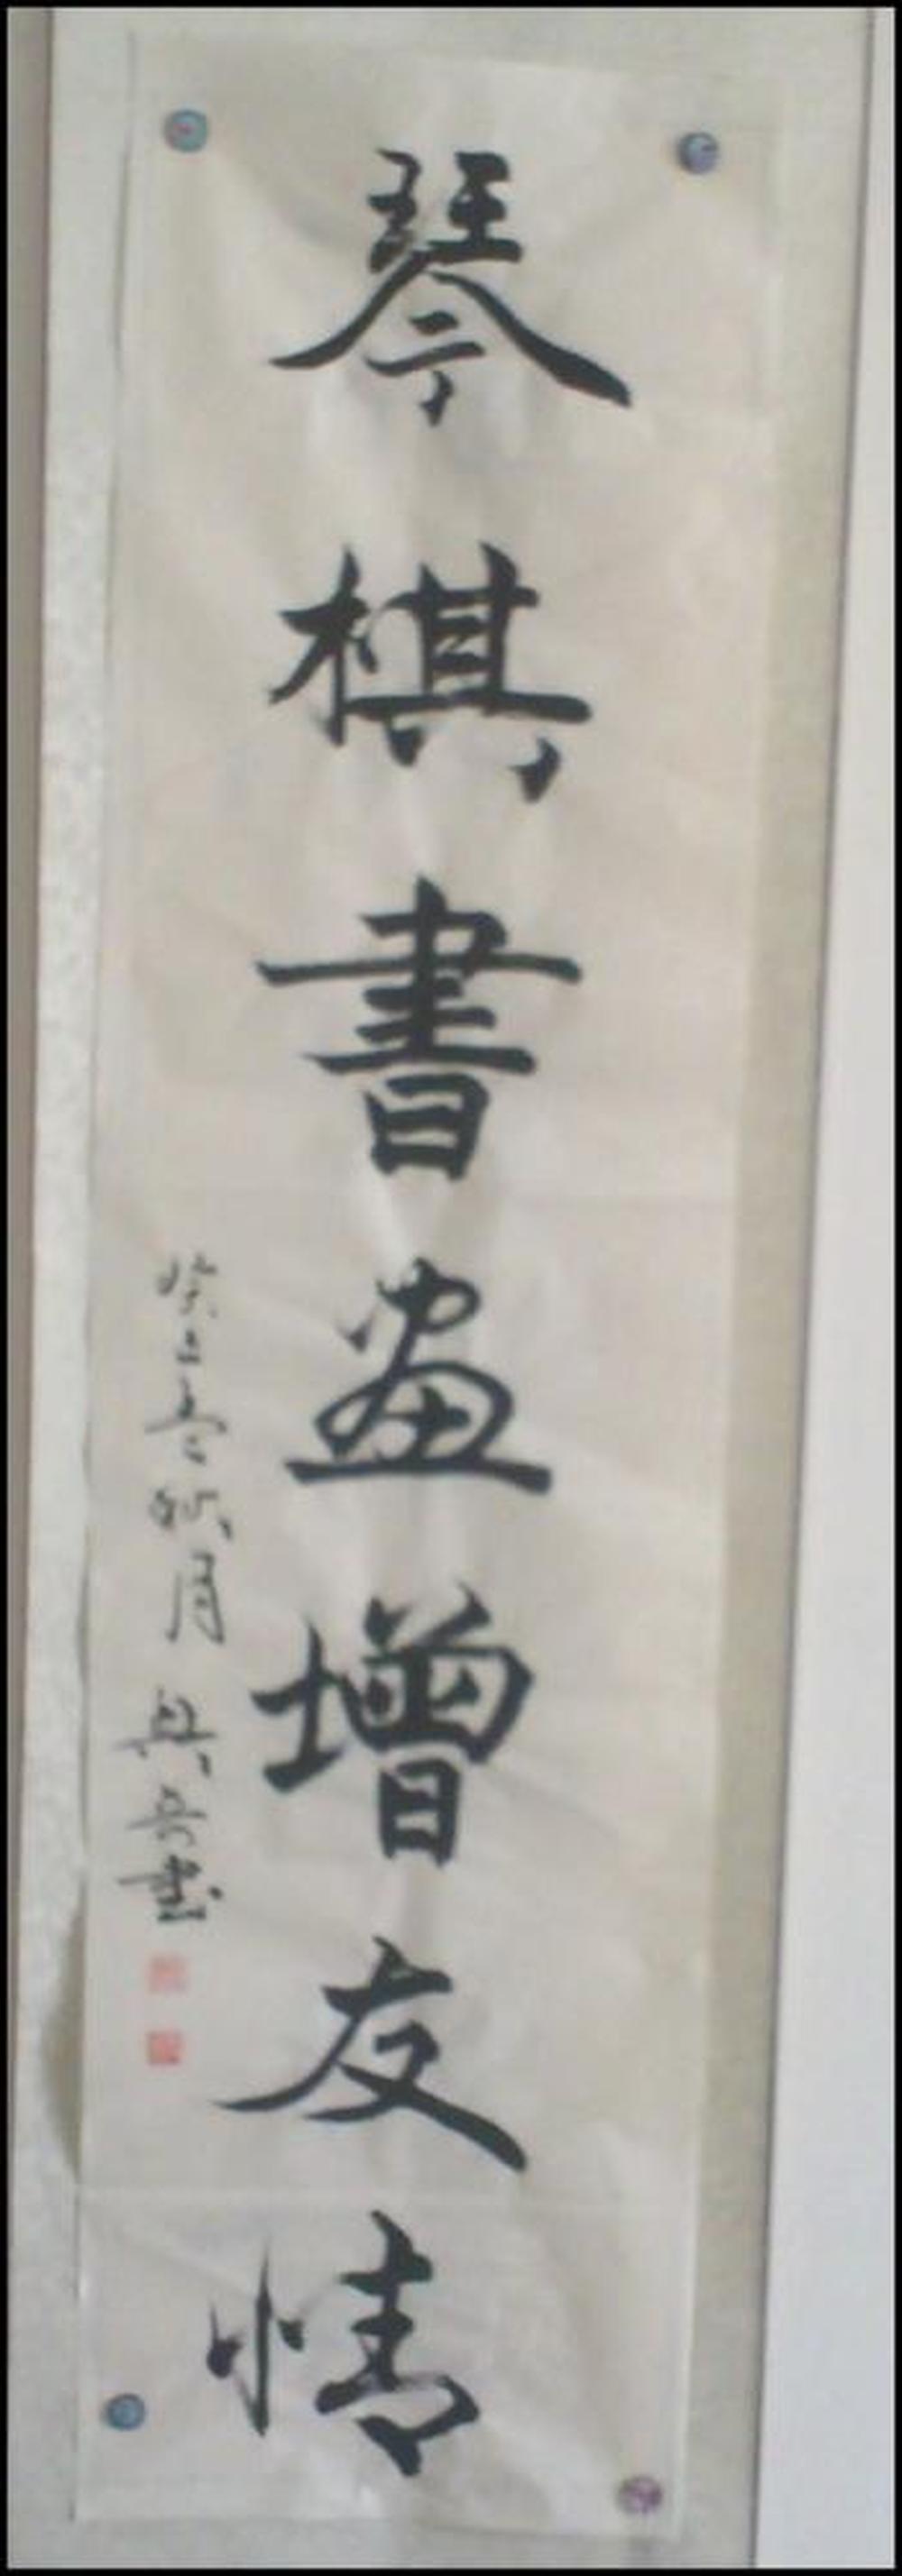 琴棋書畫增友情
癸巳年秋月 吳亮書